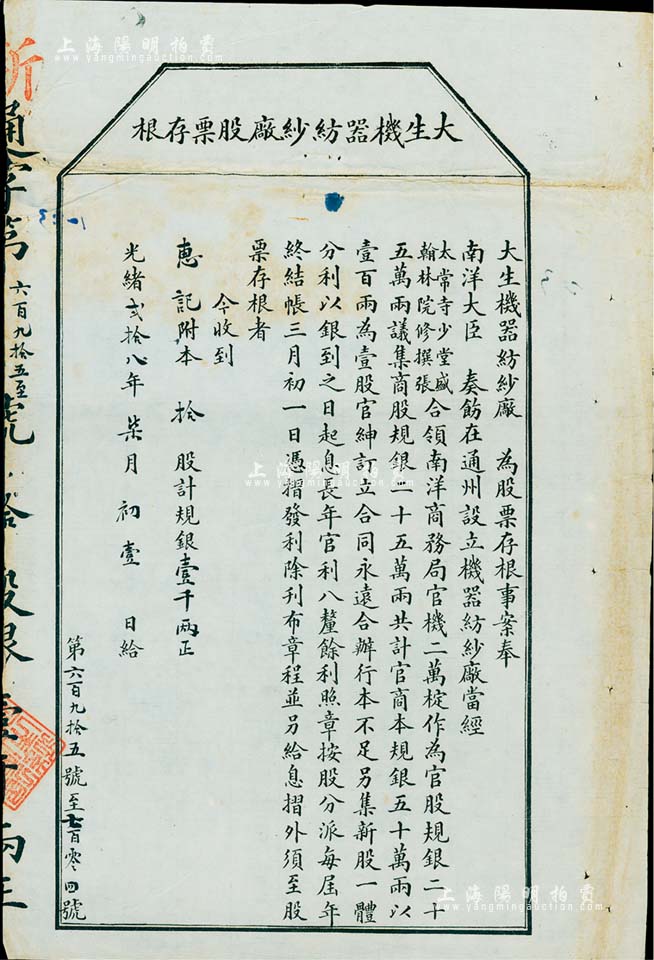 大生機器紡紗廠股票存根
大生機器紡紗廠 為股票存根事案奉
南洋大臣 奏飭在通州設立機器紡紗廠當經
太常寺少堂盛
翰林院修撰張
合領南洋商務局官機二萬椗作為官股規銀二十
五萬兩議集商股規銀二十五萬兩共計官商本規銀五十萬兩以
壹百兩為壹股官紳訂立合同永遠合辦行本不足另集新股一體
分利以銀到之日起息長年官利八釐餘利照章按股分派每屆年
終結帳三月初一日憑摺發利除刋布章程並另給息摺外須至股
票存根者
今收到
惠記附本 拾 股計規銀壹千兩正
光緒弍拾八年 柒月 初壹 日給
第六百九拾五號至七百零四號
新
通字第六百九拾五至號 拾 股銀壹千兩正
上海陽明拍賣
www.yangmingauction.com
上海陽明拍賣
www.yangmingauction.com
上海陽明拍賣
www.yangmingauction.com